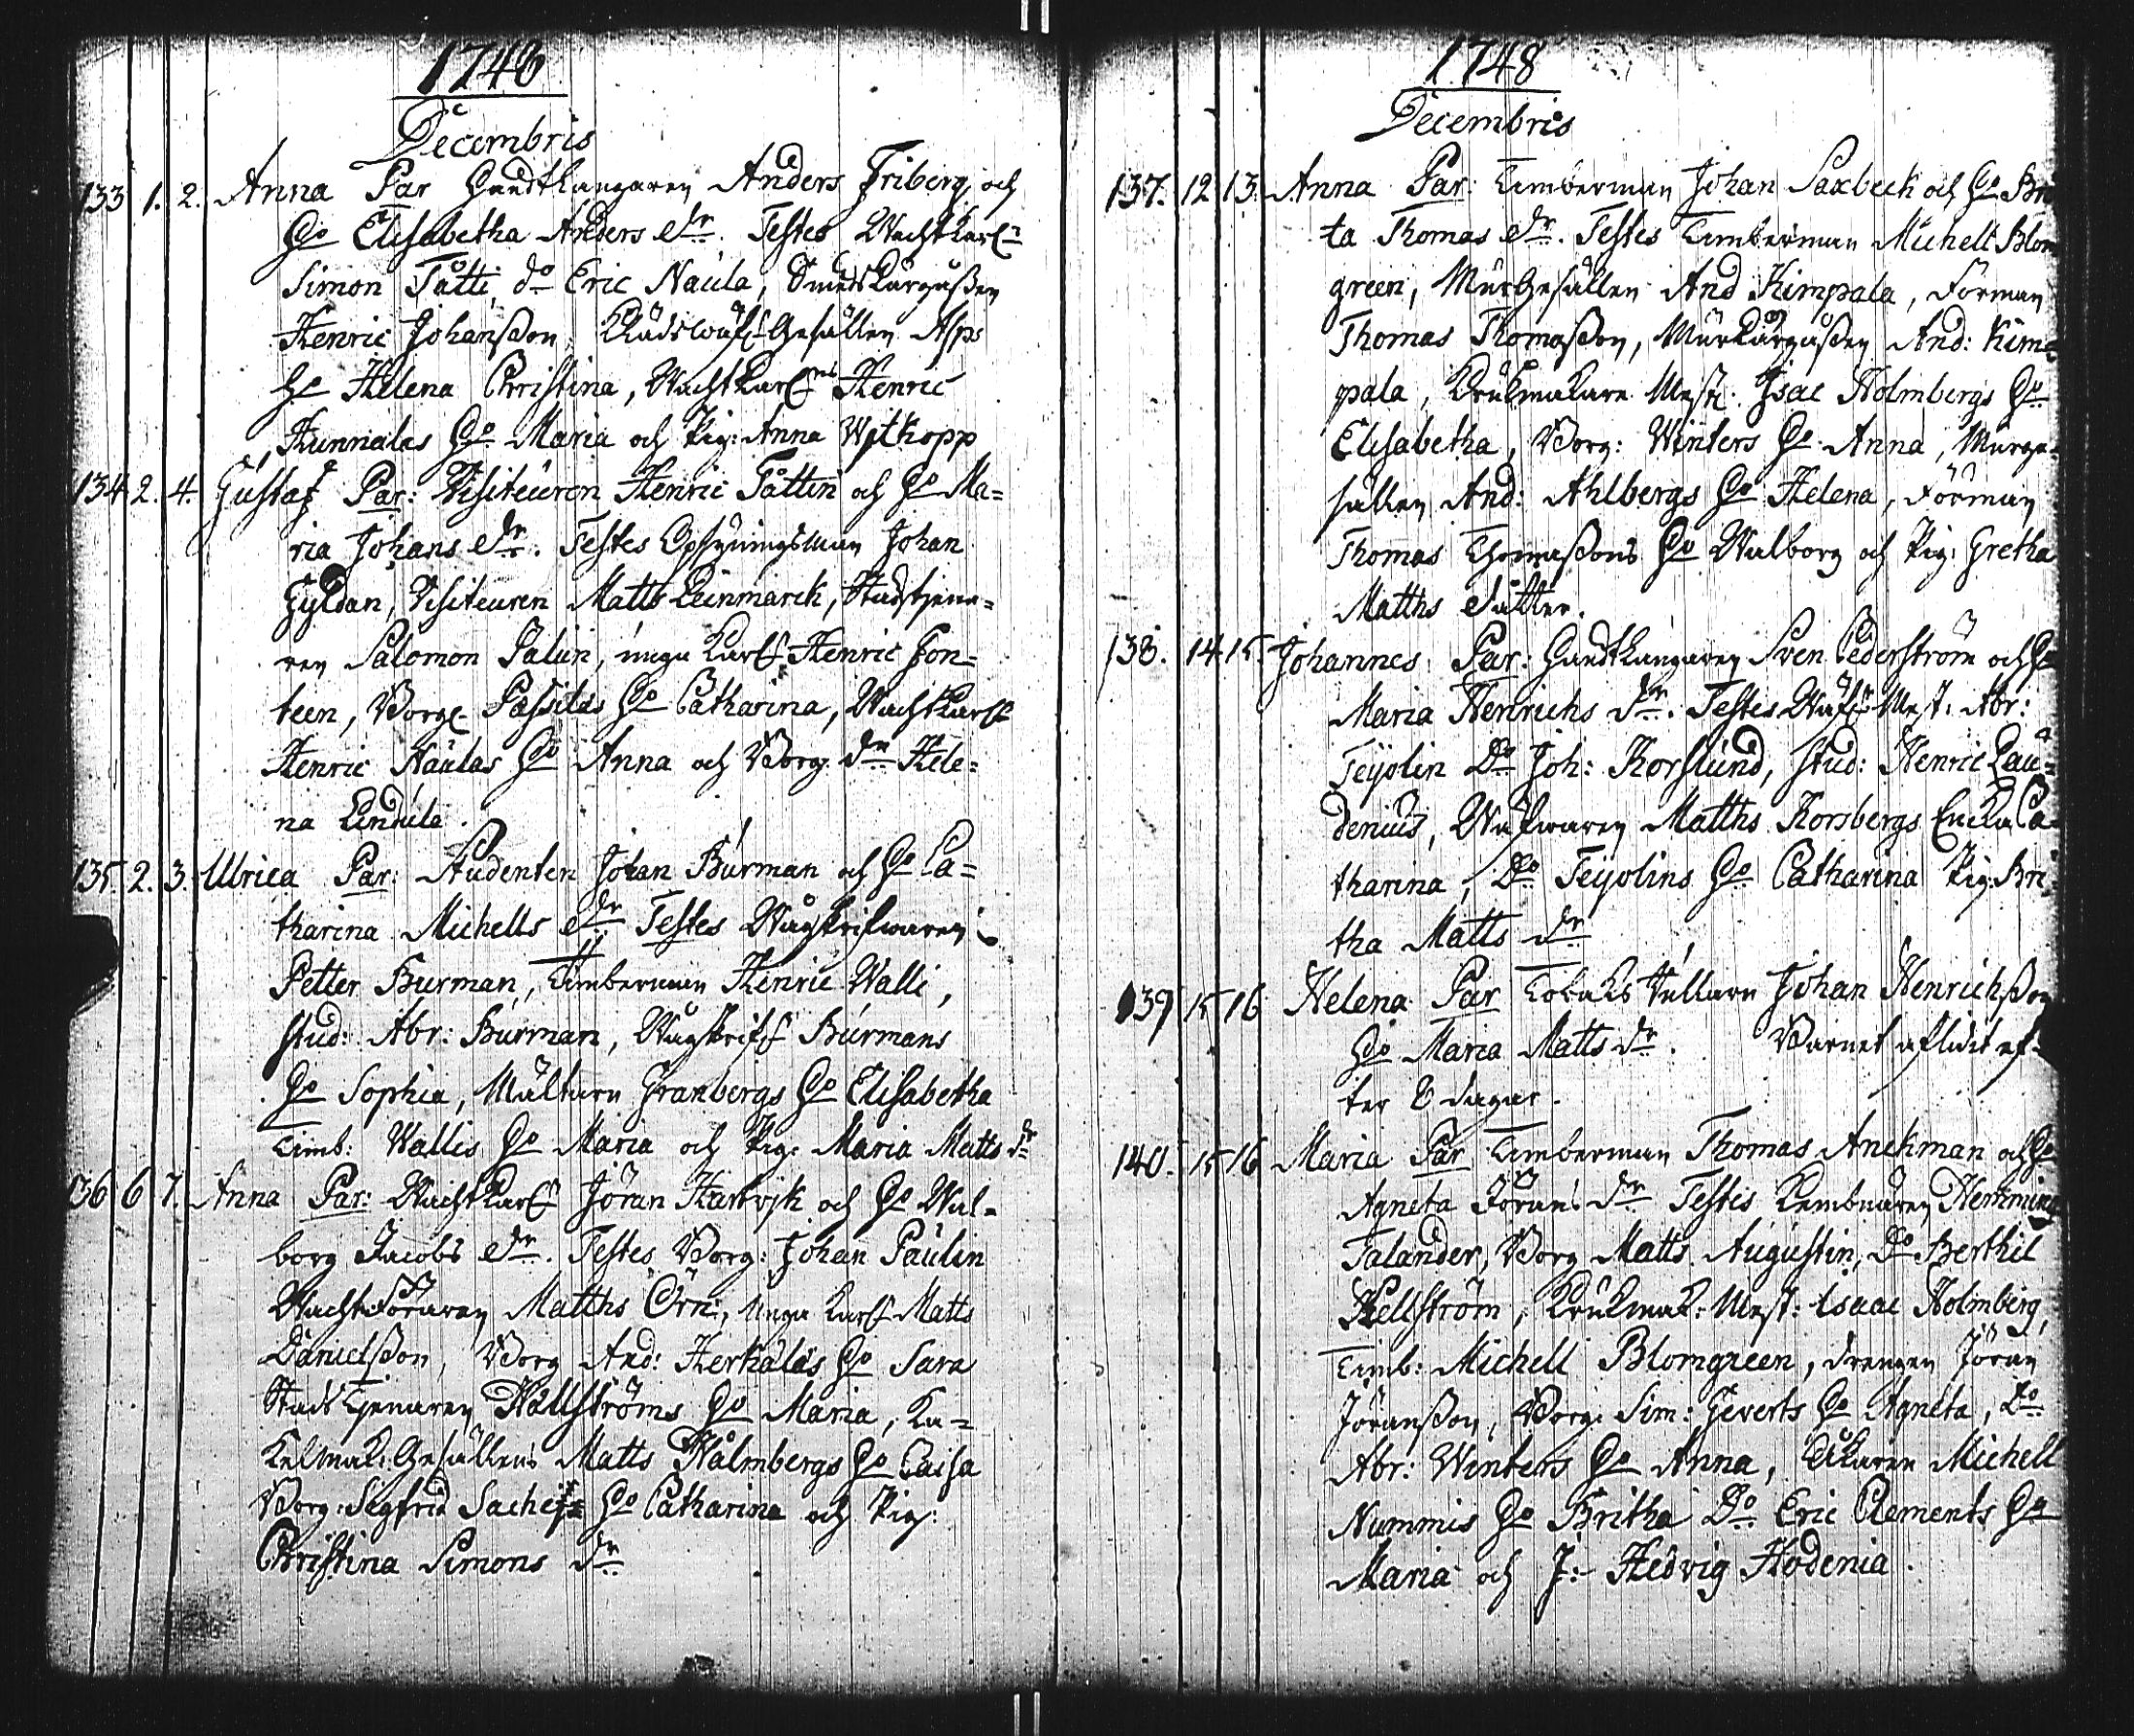 1748
Decembris
133 1. 2. Anna Par Handtlangaren Anders Friberg och
Ho Elisabetha Anders dr. Testes Wachtkarl
Simon Tåtti, do Eric Naula, Smeds Lärgåßen
Henric Johanßon, Gesällen Asps
Ho Helena Christina, Wachtkarlens Henric
Kunnalas Ho Maria och Pig: Anna Witkopp
134 2. 4. Gustaf Par: Visiteuren Henric Tåttin och Ho Ma=
ria Johans dr. Testes Opsyningsman Johan
Gyldan, Visiteuren Matts Leinmarck, Stadstjena=
ren Salomon Palin, unga Karl Henric Fon=
teen, Borg. Passilas Ho Catharina, Wachtkarl
Henric Naulas Ho Anna och Borg. dr Hele=
na Lindula.
135. 2. 3. Ulrica Par: Studenten Johan Burman och Ho Ca=
tharina Michells dr Testes Wågskrifwaren
Petter Burman, Timberman Henric Walli,
Stud: Abr: Burman, Wågskrif Burmans
Ho Sophia, Mältare Granbergs Ho Elisabetha
Timb: Wallis Ho Maria och Pig: Maria Matts dr
36 6 7. Anna Par: Wachtkarl Jöran Hartvik och Ho Wal=
borg Jacobs dr. Testes Borg: Johan Paulin
Wachtföraren Matths Örn, unga Karl Matts
Danielßon, Borg And: Kerkälas Ho Sara
Stads Tjenaren Hallströms Ho Maria, Ka=
kelmak: Gesällens Matts Malmbergs Ho Caisa
Borg: Segfrid Ho Catharina och Pig:
Christina Simons dr
1748
Decembris
137. 12 13. Anna Par: Timberman Johan Saxbeck och Ho Bri
ta Thomas dr. Testes Timberman Michell Blom
green, Mur Gesällen And Kimpala, Förman
Thomas Thomaßon, Murlärgåßen And: Kim
pala, Krukmakare Mest: Isac Holmbergs Ho
Elisabetha, Borg: Winters Ho Anna, Murge=
sällen And: Ahlbergs Ho Helena, Förman
Thomas Thomaßons Ho Walborg och Pig: Gretha
Matths dåtter.
138. 14 15. Johannes Par: Handtlangaren Sven Cederström och Ho
Maria Henrichs dr. Testes Wäf Mest: Abr:
Teijolin Do Joh: Korslund, Stud: Henric Lau=
denius, Wäfwaren Matths Korsbergs Enka Ca
tharina, Do Teijolins Ho Catharina Pig: Bri
tha Matts dr
139 15 16 Helena Par Tobaks Johan Henrichßon
Ho Maria Matts dr. Barnet aflidit ef=
ter 8 dagar.
140. 15 16 Maria Par Timberman Thomas Anckman och Ho
Agneta Jörans dr Testes Hemming
Talander, Borg Matts Augustin, Do Berthil
Hellström, Krukmak: Mest: Isaac Holmberg,
Timb: Michell Blomgreen, drengen Jöran
Jöranßon, Borg: Sim: Geverts Ho Agneta, Do
Abr: Winters Ho Anna, Åkaren Michell
Nummis Ho Britha Do Eric Clements Ho
Maria och J: Hedvig Hodenia.